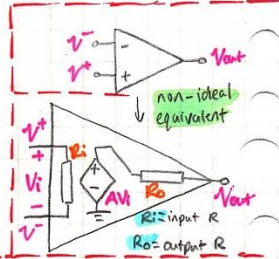 V⁻ -
V⁺ + Vout
non-ideal
equivalent
V⁺
+ Ri +
Vi - Ro
- AVi Vout
V⁻ Ri = input R
Ro = output R